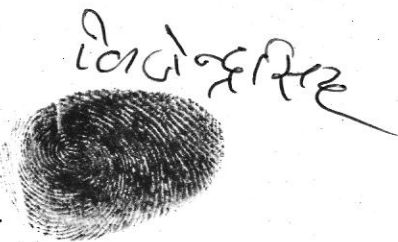 विजेन्द्रसिंह